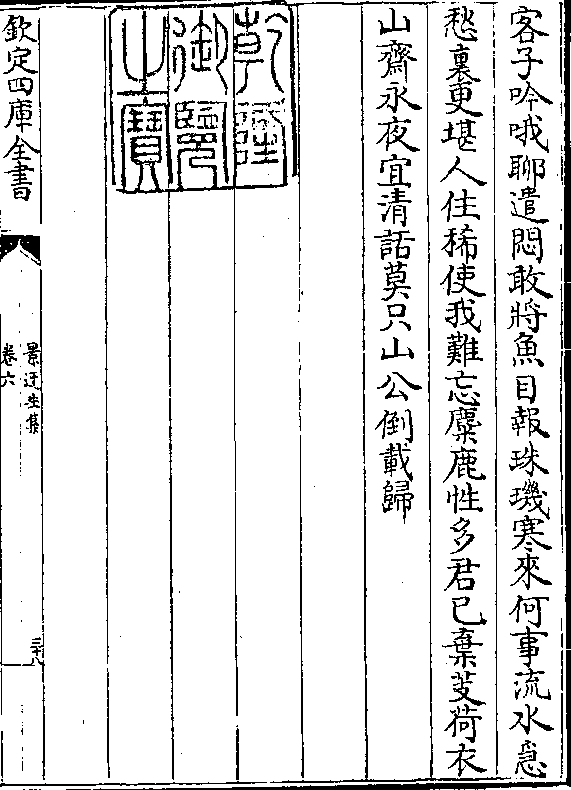 客子吟哦聊遣悶敢將魚目報珠璣寒來何事流水急
愁裏更堪人住稀使我難忘麋鹿性多君已棄芰荷衣
山齋永夜宜清話莫只山公倒載歸
乾隆
御覽
之寶
欽定四庫全書
景迂生集
卷六
三十八